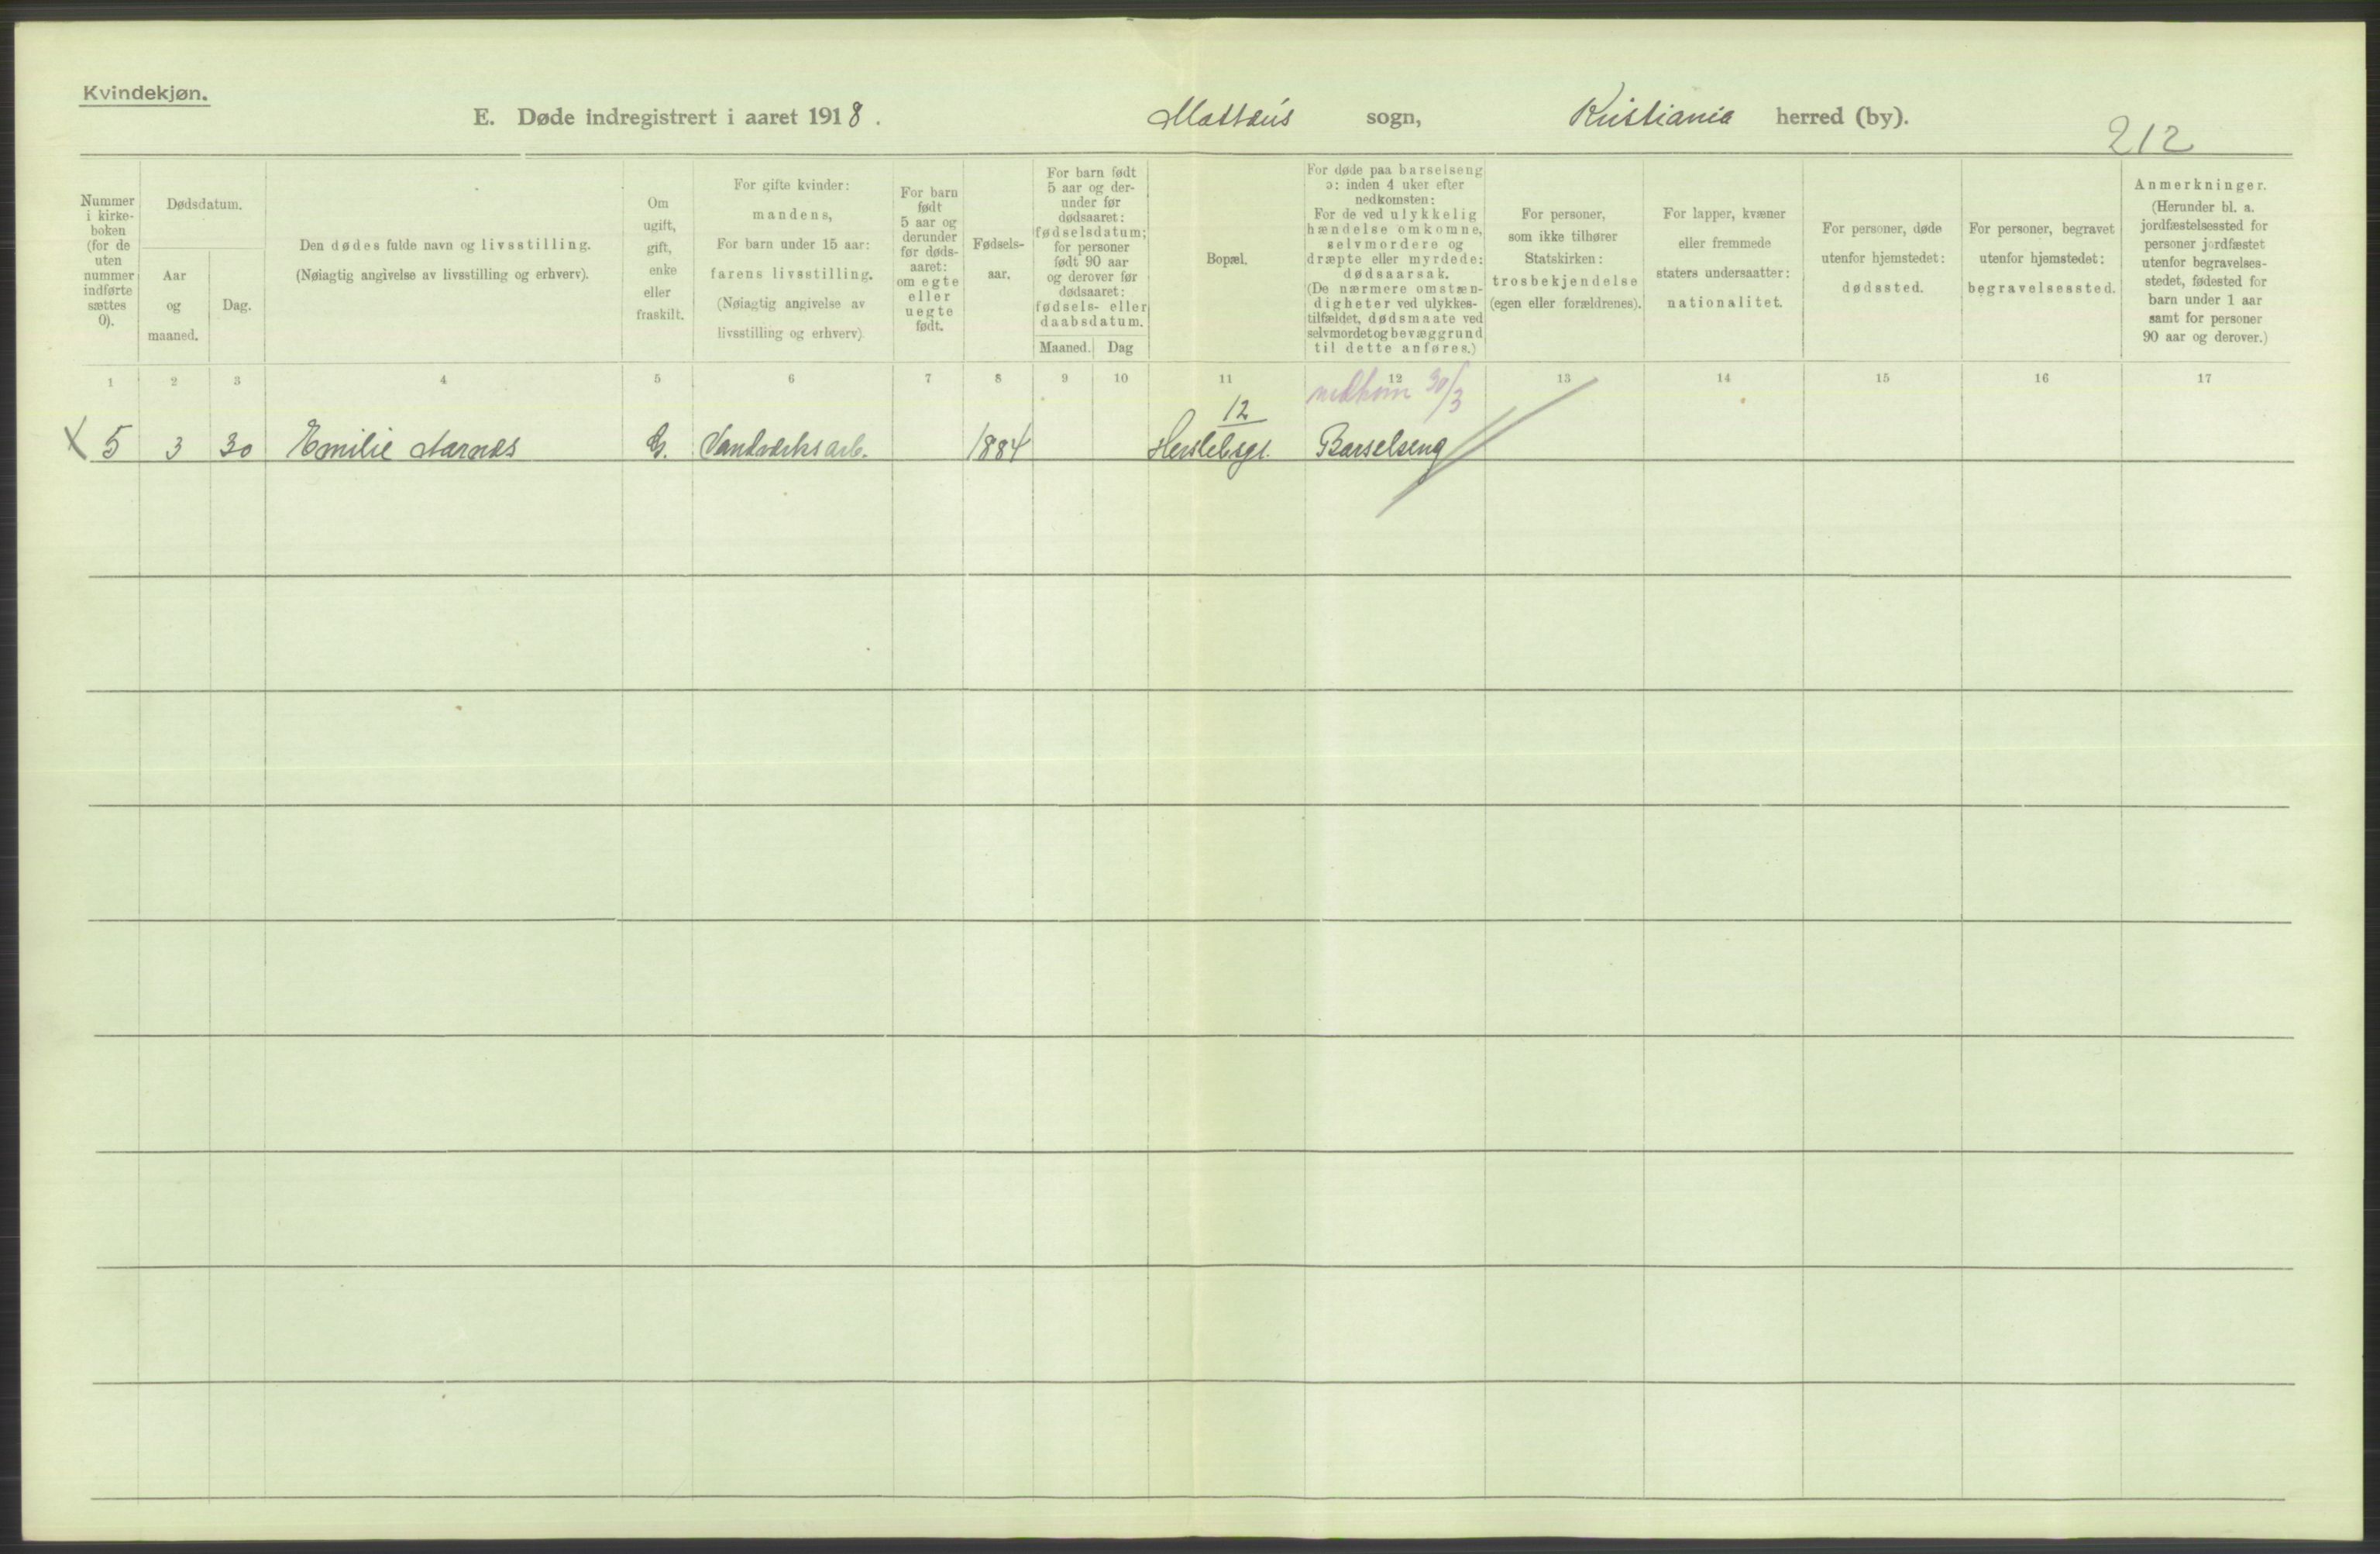 Kvindekjøn.
E. Døde indregistrert i aaret 1918. Mattæus sogn, Kristiania herred (by).
212
Nummer
i kirke-
boken
(for de
uten
nummer
indførte
sættes
0).
Dødsdatum.
Aar
og
maaned.
Dag.
Den dødes fulde navn og livsstilling.
(Nøiagtig angivelse av livsstilling og erhverv).
Om
ugift,
gift,
enke
eller
fraskilt.
For gifte kvinder:
mandens,
For barn under 15 aar:
farens livsstilling.
(Nøiagtig angivelse av
livsstilling og erhverv)
For barn
født
5 aar og
derunder
før døds-
aaret:
om egte
eller
uegte
født.
Fødsels-
aar.
For barn født
5 aar og der-
under før
dødsaaret:
fødselsdatum;
for personer
født 90 aar
og derover før
dødsaaret:
fødsels- eller
daabsdatum.
Maaned. Dag
Bopæl.
For døde paa barselseng
ɔ: inden 4 uker efter
nedkomsten:
For de ved ulykkelig
hændelse omkomne,
selvmordere og
dræpte eller myrdede:
dødsaarsak.
(De nærmere omstæn-
digheter ved ulykkes-
tilfældet, dødsmaate ved
selvmordet og bevæggrund
til dette anføres.)
For personer,
som ikke tilhører
Statskirken:
trosbekjendelse
(egen eller forældrenes).
For lapper, kvæner
eller fremmede
staters undersaatter:
nationalitet.
For personer, døde
utenfor hjemstedet:
dødssted.
For personer, begravet
utenfor hjemstedet:
begravelsessted.
Anmerkninger.
(Herunder bl. a.
jordfæstelsessted for
personer jordfæstet
utenfor begravelses-
stedet, fødested for
barn under 1 aar
samt for personer
90 aar og derover.)
1 2 3 4 5 6 7 8 9 10 11 12 13 14 15 16 17
nedkom 30/3
12
5 3 30 Emilie Aarnæs G. Vandværksarb. 1884 Herslebsgt. Barselseng